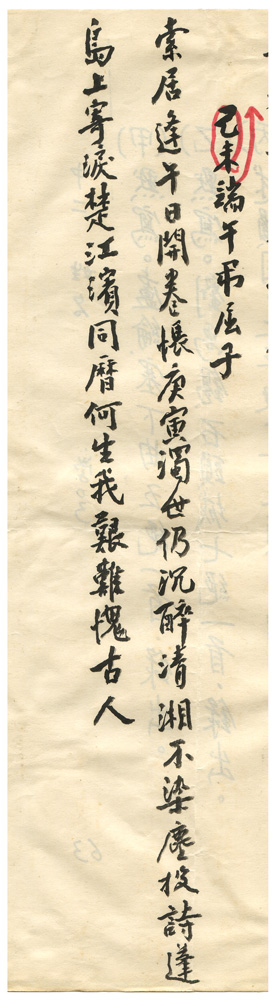 己未端午弔屈子
索居逢午日開卷悵庚寅濁世仍沉醉清湘不染塵投詩蓬
島上寄淚楚江濱同曆何生我艱難愧古人